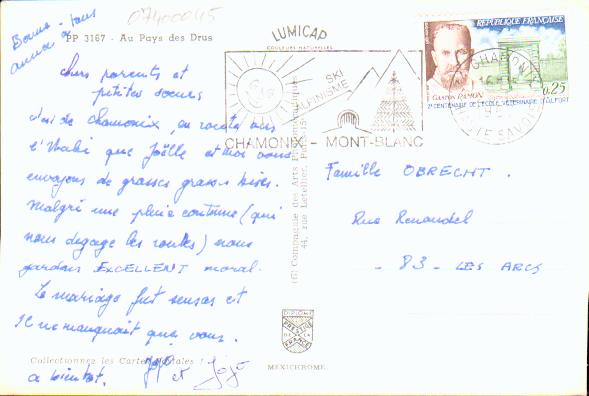 07400045
Bonne - tous
PP 3167 - Au Pays des Drus
Chers parents et
petites soeurs
c'est de chamonix, en route vers
l'Italie que Joëlle et moi vous
envoyons de grosses grosses bises.
Malgré une pluie continue (qui
nous degage les routes) nous
gardons EXCELLENT moral.
Le mariage fut sensas et
Il ne manquait que vous.
Collectionnez les Cartes Postales !
a bientot.
et Jojo
LUMICAP
COULEURS NATURELLES
SKI
ALPINISME
CHAMONIX - MONT-BLANC
REPUBLIQUE FRANÇAISE
GASTON RAMON
0,25
2e CENTENAIRE DE L'ECOLE VETERINAIRE D'ALFORT
CHAMONIX
HTE SAVOIE
(C) Compagnie des Arts Photomécaniques
44, rue Letellier, Paris-15e
DIPLOME
PRESTIGE
DE LA
FRANCE
MEXICHROME
Famille OBRECHT.
Rue Renaudel
- 83 - LES ARCS